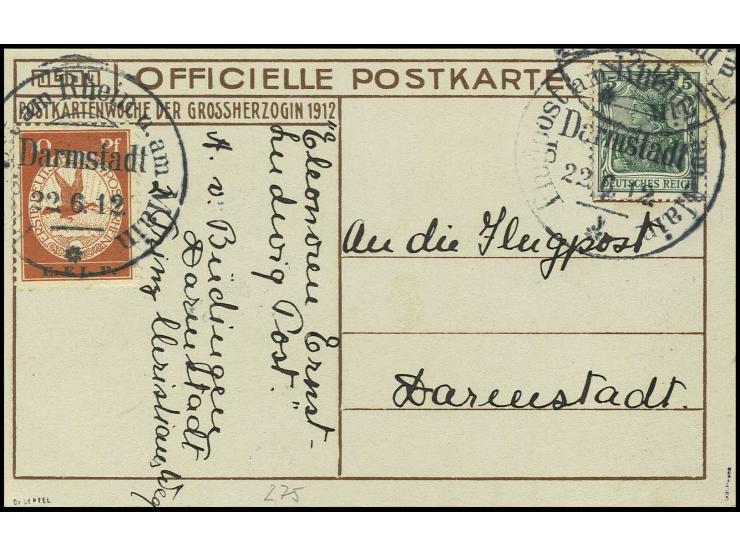 OFFICIELLE POSTKARTE
POSTKARTENWOCHE DER GROSSHERZOGIN 1912
10 Pf
E.EL.P.
am Rhein u. am Main
Darmstadt
22.6.12
5
DEUTSCHES REICH
Flugpost am Rhein u. am Main
Darmstadt
22.6.12
"Eleonoren Ernst-
Ludwig Post."
A. v. Büdingen
Darmstadt
Prinz Christiansweg
An die Flugpost
Darmstadt.
275